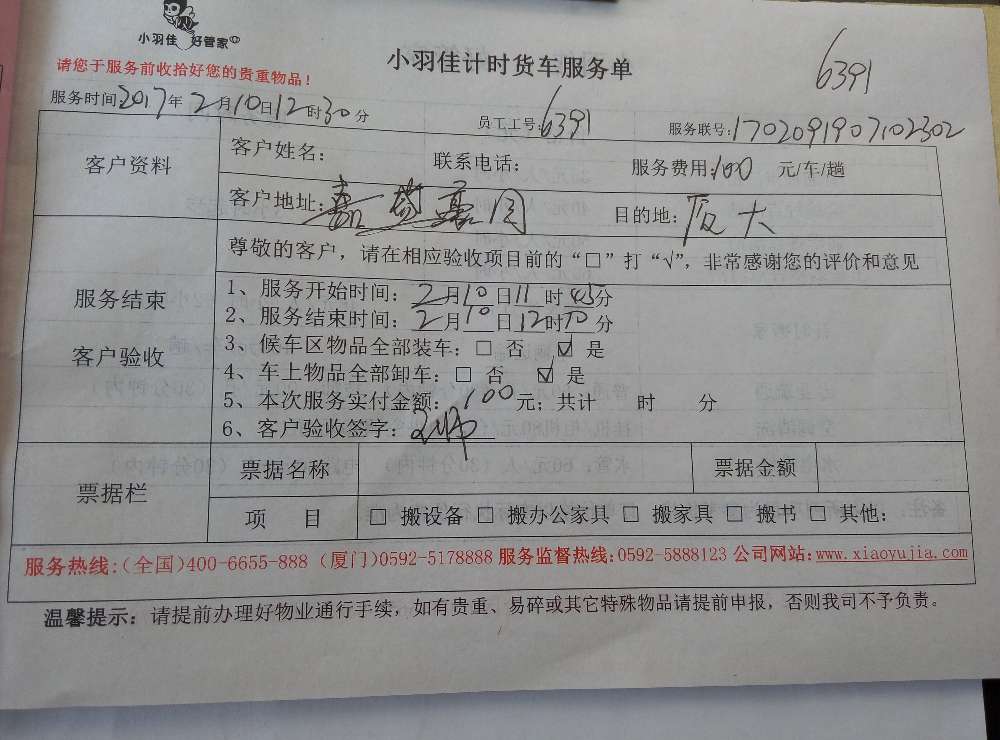 小羽佳 好管家
请您于服务前收拾好您的贵重物品！
小羽佳计时货车服务单
6391
服务时间2017年2月10日12时30分
员工工号:6391
服务联号:1702091907102302
客户资料
客户姓名：
联系电话：
服务费用:100 元/车/趟
客户地址:
目的地:厦大
尊敬的客户，请在相应验收项目前的“□”打“√”，非常感谢您的评价和意见
服务结束
客户验收
1、服务开始时间：2月10日11时45分
2、服务结束时间：2月10日12时
分
3、候车区物品全部装车：□ 否 ☑ 是
4、车上物品全部卸车：□ 否 ☑ 是
5、本次服务实付金额：100元；共计 时 分
6、客户验收签字：
票据栏
票据名称
票据金额
项 目 □ 搬设备 □ 搬办公家具 □ 搬家具 □ 搬书 □ 其他：
服务热线:(全国)400-6655-888 (厦门)0592-5178888 服务监督热线:0592-5888123 公司网站:www.xiaoyujia.com
温馨提示：请提前办理好物业通行手续，如有贵重、易碎或其它特殊物品请提前申报，否则我司不予负责。